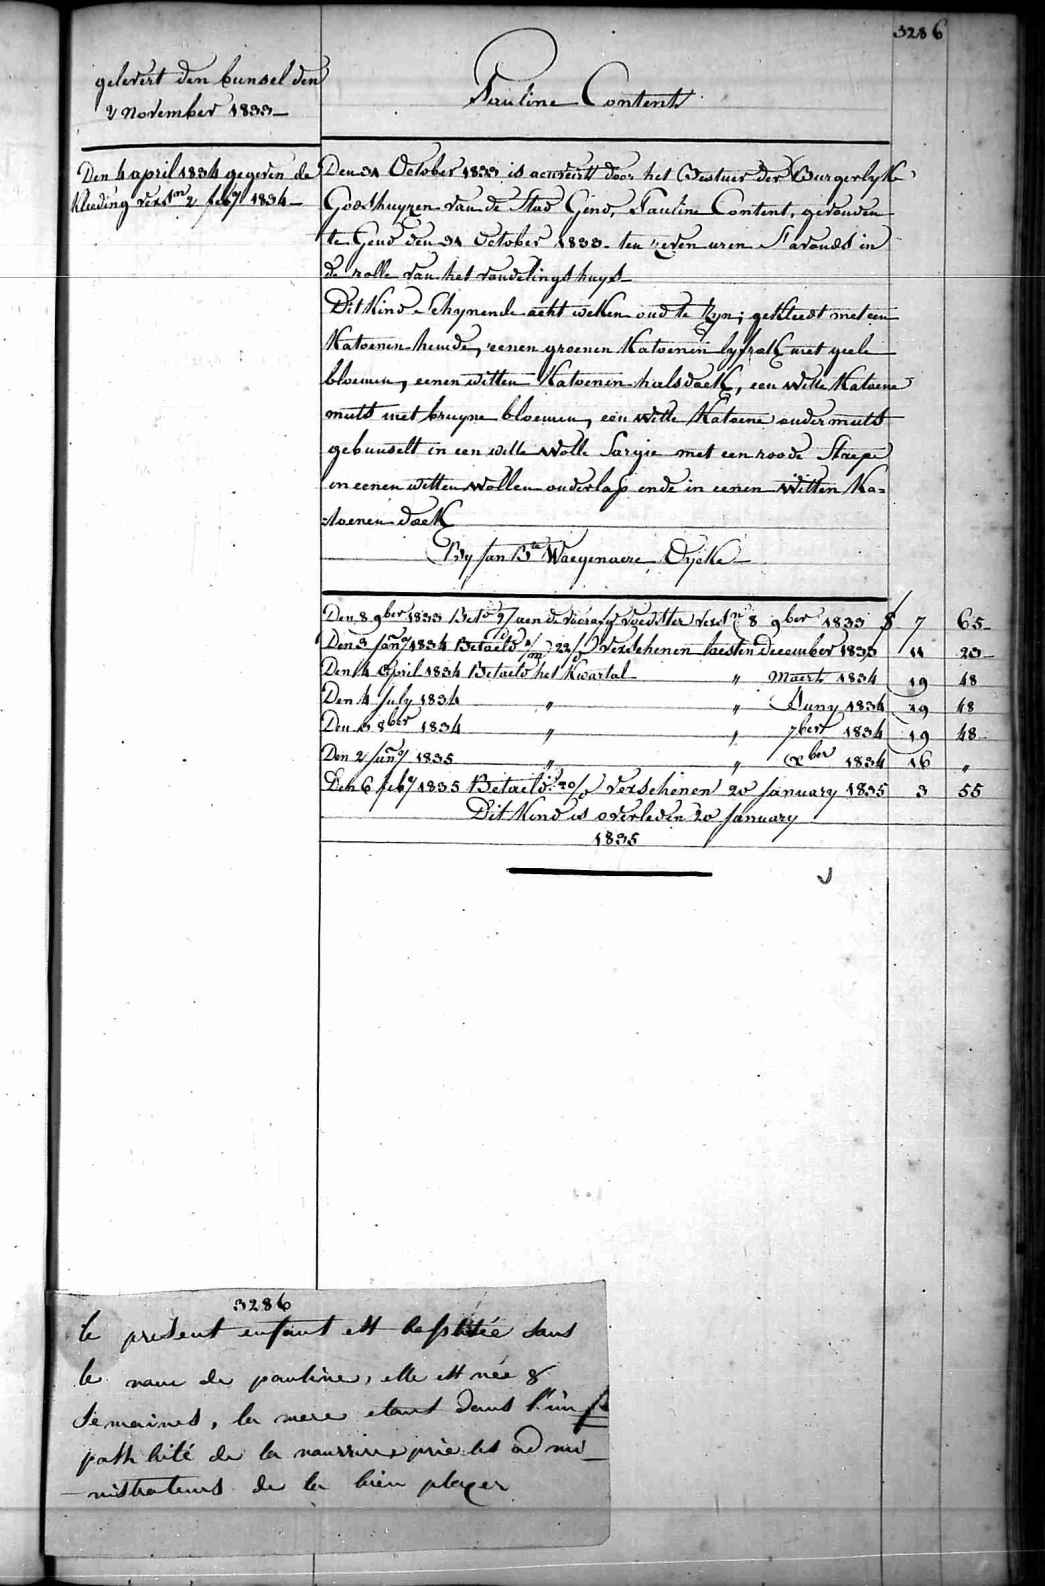 3286
gelevert den bunsel den
2 november 1833
Pauline Content
Den 4 april 1834 gegeven de
kleeding vers.en 2 feb.y 1834
Den 31 October 1833 is aenveirt door het Bestuer der Burgerlyke
Godshuyzen van de Stad Gend, Pauline Content, gevonden
te Gend den 31 October 1833 ten zeven uren S'avonds in
de rolle van het vondelingshuys
Dit Kind Schynende acht weken oud te zyn; gekleedt met een
Katoenen hemde, eenen groenen Katoenen lyfrok met geele
bloemen, eenen witten Katoenen halsdoek, een witte Katoene
muts met bruyne bloemen, een witte Katoene ondermuts
gebunselt in een witte wolle Sargie met een roode Streepe
in eenen witten wollen onderlap ende in eenen witten Ka=
=toenen doek
By Jan B.te Waegenaere Dycke
Den 8 9ber 1833 Bet.d aen de voorsz. voedster vers.n 8 9ber 1833 f 7 65
Den 3 Jan.y 1834 Betaeld 1/m 22/d verschenen laesten December 1833 11 23
Den 4 April 1834 Betaeld het Kwartal " Maerts 1834 19 48
Den 4 July 1834 " " Juny 1834 19 48
Den 3 8ber 1834 " " 7ber 1834 19 48
Den 2 Jan.y 1835 " " Xber 1834 16 "
Den 6 feb.y 1835 Betaeld 20/d verschenen 20 January 1835 3 55
Dit Kind is overleden 20 January
1835
3286
le présent enfant est baptisée sous
le nom de pauline, elle est née 8
semaines, la mere etant dans l'im
possibilité de la nourrire prie les admi
nistrateurs de la bien placer